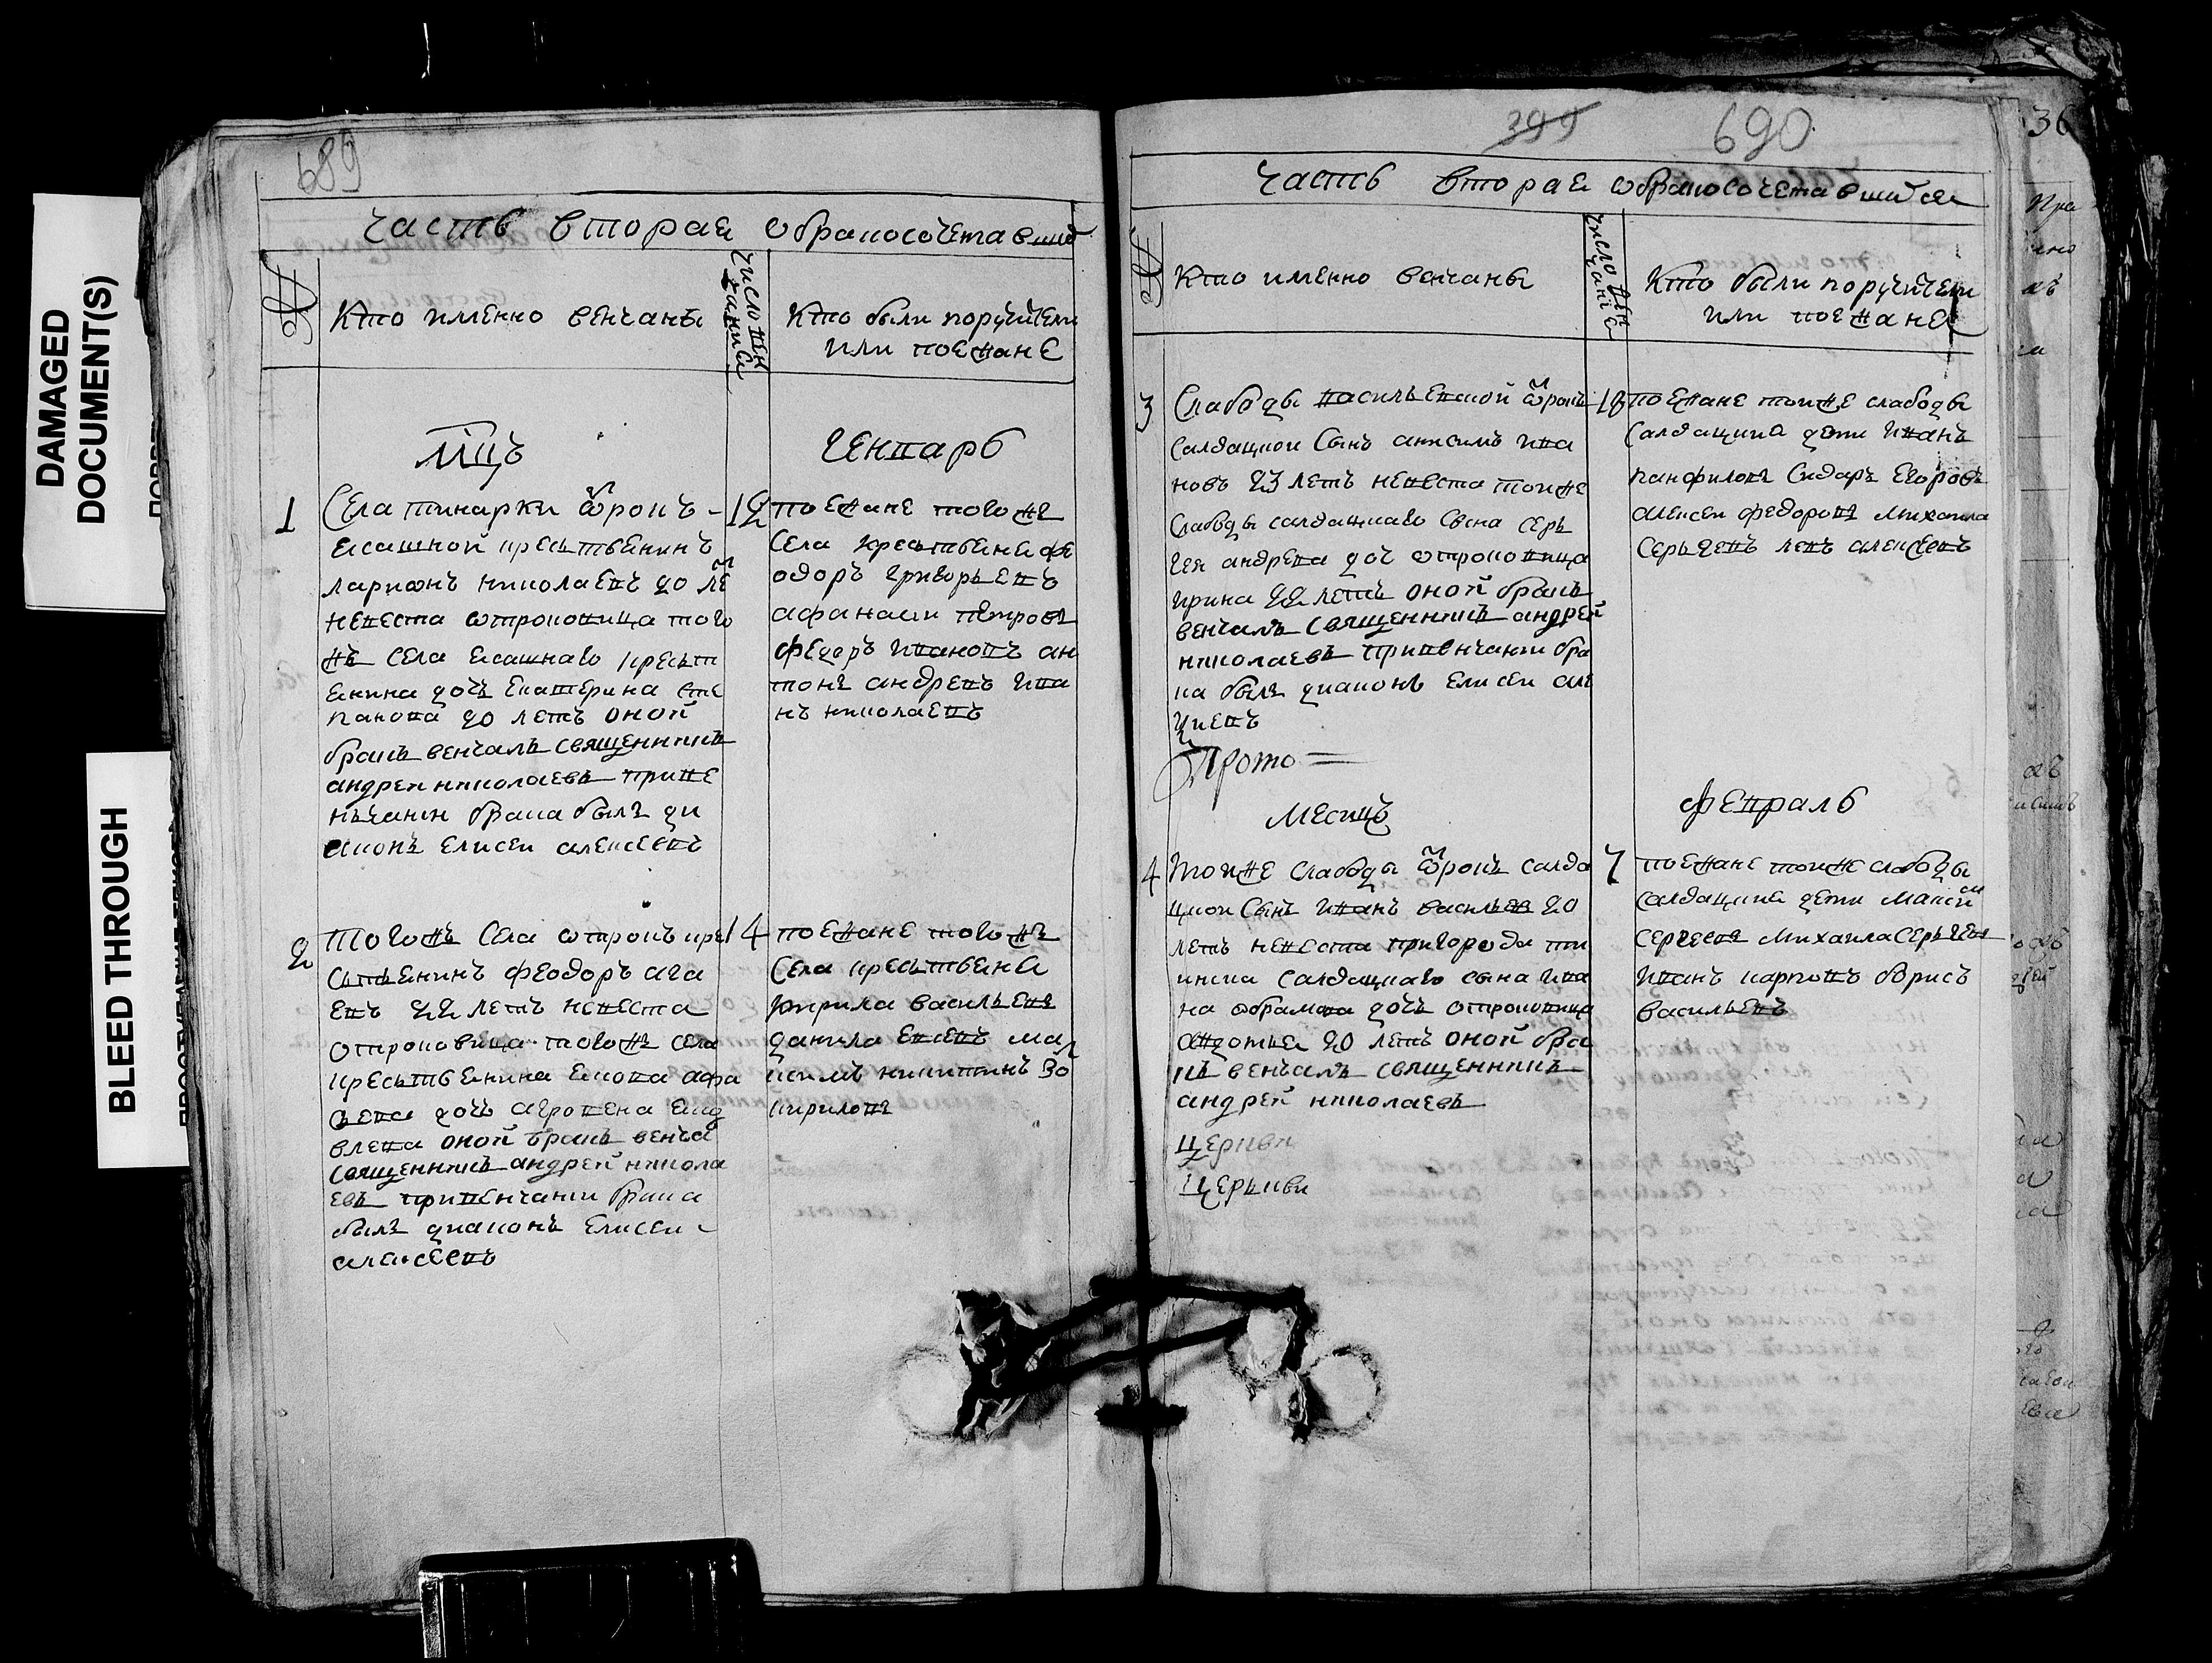 DAMAGED
DOCUMENT(S)
BLEED THROUGH
689
часть вторая ѡбракосочетавших
№
кто именно венчаны
число венчания
кто были поручители
или поезжане
мцъ
генварь
1
Села тинарки ѿрокъ
ясашной крестьянинъ
ларионъ николаевъ 20 ле
невеста ѡтроковица того
жъ села ясашнаго кресьт
янина дочь Екатерина сте
панова 20 летъ оной
бракъ венчалъ священникъ
андреи николаевъ приве
нчании брака былъ ди
аконъ Елисеи алексеевъ
12
поезжане тогоже
села крестьяне фе
одоръ григорьевъ
афанасии петровъ
федоръ ивановъ ан
тонъ андревъ ива
нъ николаевъ
2
Тогожъ села ѡтрокъ кре
стьянинъ феодоръ ага
евъ 22 летъ невеста
отроковица тогоже села
кресьтьянина
дочь агрофена
оной бракъ венча
священникъ андрей никола
евъ привенчании брака
былъ диаконъ Елисеи
алексеевъ
14
поезжане тогоже
села кресьтьяня
кирила васильевъ
данила Евсевъ мак
симъ никитинъ
кирилов
399
690
36
часть вторая ѡбракосочетавшихся
№
кто именно венчаны
число венчание
кто были поручители
или поезжане
3
Слабоды васильевской ѿрокъ
салдацкои сынъ анисимъ ива
новъ 23 летъ невеста тоиже
слабоды салдацкаго сына серь
гея андрева доч ѡтроковица
ирина 22 летъ оной бракъ
венчалъ священникъ андрей
николаевъ привенчании бра
ка былъ диаконъ Елисеи але
18
поезжане тоиже слабоды
салдацкия дети иванъ
панфиловъ Сидаръ Егоровъ
алексеи федоровъ михаила
серьгевъ левъ алексеевъ
Прото
месяцъ
февраль
4
тоиже слабоды ѿрокъ салда
цкои сынъ иванъ васильев 20
летъ невеста пригорода ти
инска салдацкаго сына ива
на абрамова дочь отроковица
авдотья 20 летъ оной бра
къ венчалъ священникъ
андрей николаевъ
церкви
церькви
7
поезжане тоиже слабоды
салдацкия дети максим
сергеевъ михаила серьгевъ
иванъ карповъ борисъ
васильевъ